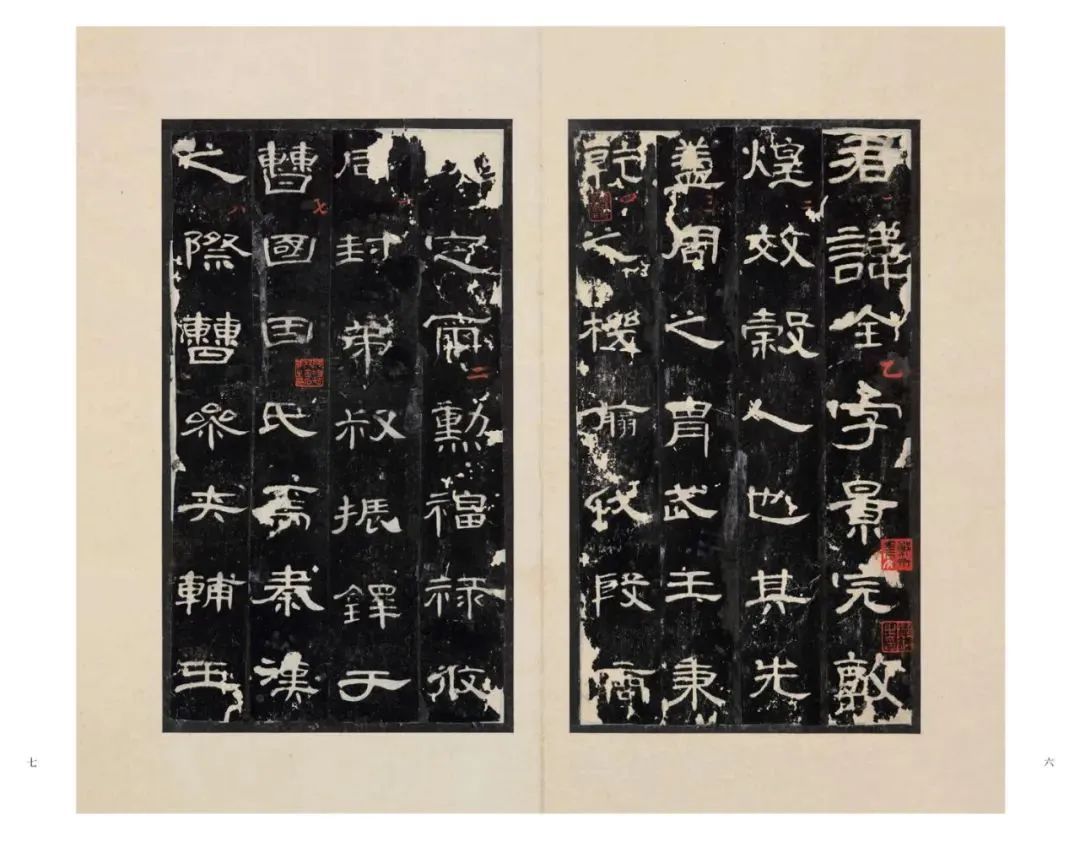 君諱全字景完敦
煌效穀人也其先
蓋周之胄武王秉
乾之機翦伐殷商
定爾勳福祿攸
同封弟叔振鐸于
曹國因氏焉秦漢
之際曹參夾輔王
六
七